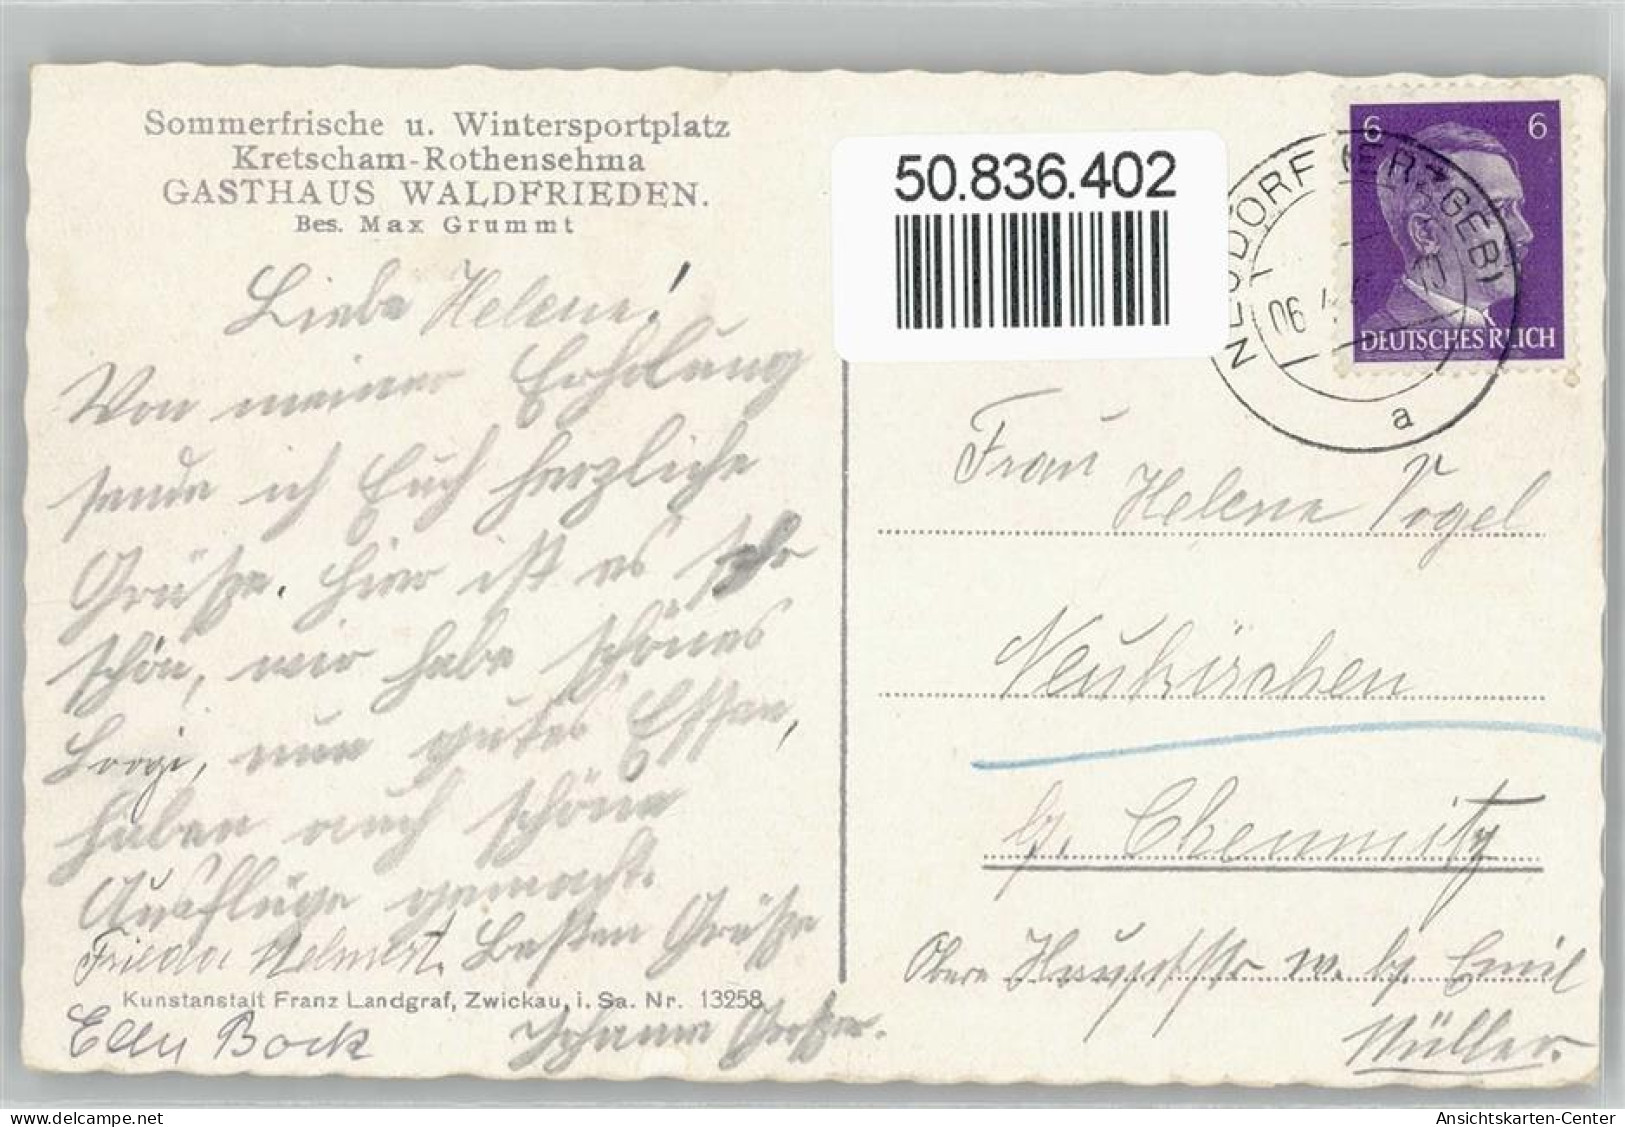 Sommerfrische u. Wintersportplatz
Kretscham-Rothensehma
GASTHAUS WALDFRIEDEN.
Bes. Max Grummt
Liebe Helene!
Von meiner Erholung
sende ich Euch herzliche
Grüße. Hier ist es sehr
schön, wir habe schönes
nur gutes Essen,
haben auch schöne
Ausflüge gemacht.
Frieda Helmert. Besten Grüße
Kunstanstalt Franz Landgraf, Zwickau, i. Sa. Nr. 13258
Elly Bock Johanna
50.836.402
6 6
DEUTSCHES REICH
NEUDORF (ERZGEB)
06.4.
a
Frau
Helene Vogel
Neukirchen
b/. Chemnitz
Obere Hauptstr w. b/. Emil
Müller.
delcampe.net
Ansichtskarten-Center